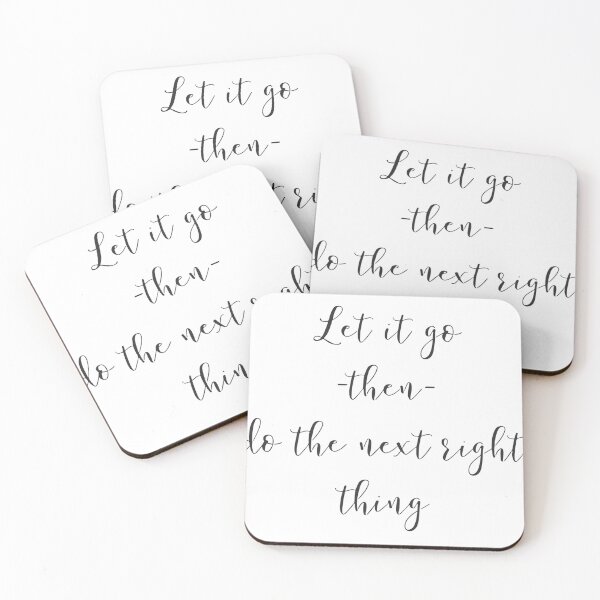 Let it go
-then-
Let it go
-then-
do the next right
Let it go
-then-
do the next right
thing
Let it go
-then-
do the next right
thing